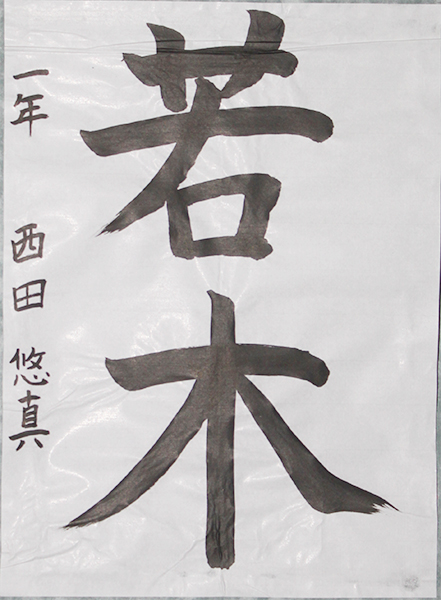 若木
一年 西田 悠真